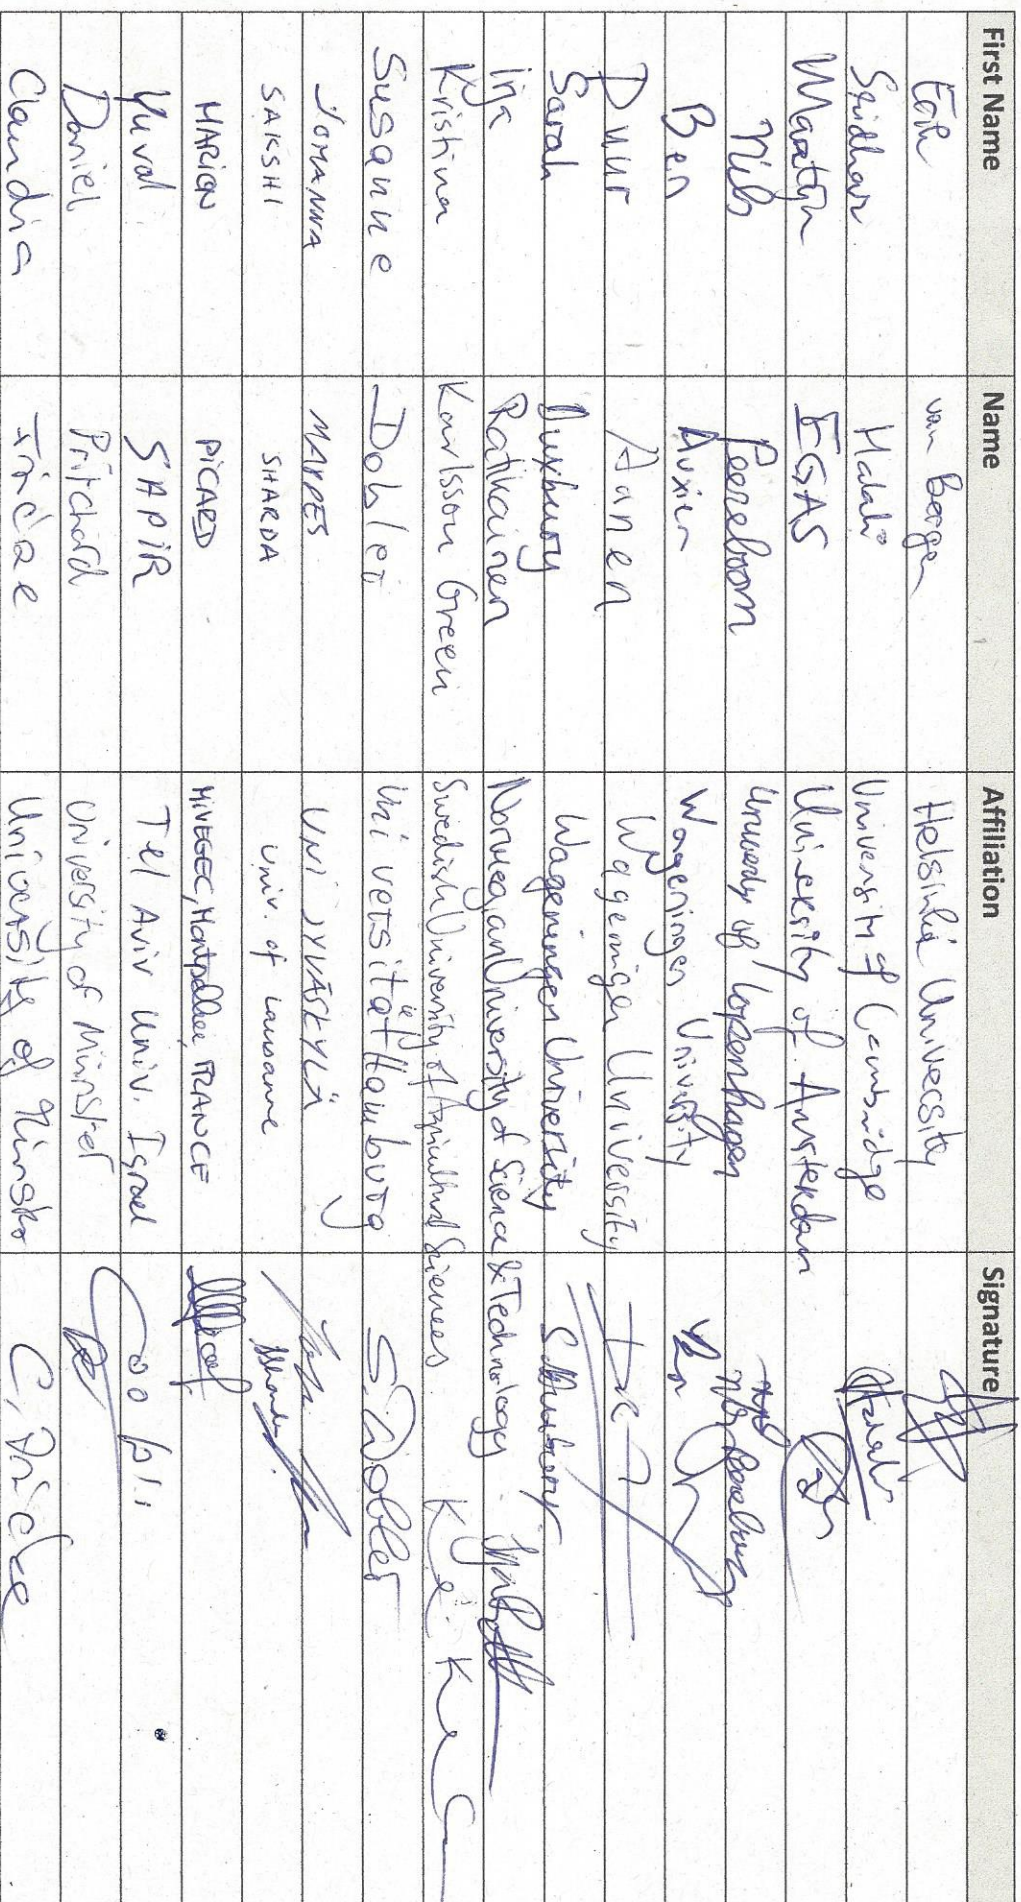 First Name Name Affiliation Signature
Erik van Bergen Helsinki University
Sridhar Halali University of Cambridge
Martijn EGAS University of Amsterdam
Nils Peereboom University of Copenhagen
Ben Auxier Wageningen University Ben
Duur Aanen Wageningen University
Sarah Duxbury Wageningen University S Duxbury
Irja Ratikainen Norwegian University of Science & Technology
Kristina Karlsson Green Swedish University of Agricultural Sciences
Susanne Dobler Universität Hamburg S. Dobler
JOHANNA MAPPES UNI JYVÄSKYLÄ
SAKSHI SHARDA Univ. of Lausanne
MARION PICARD MIVEGEC, Montpellier, FRANCE
Yuval SAPIR Tel Aviv Univ. Israel
Daniel Pritchard University of Münster
Claudia Fricke University of Münster C. Fricke